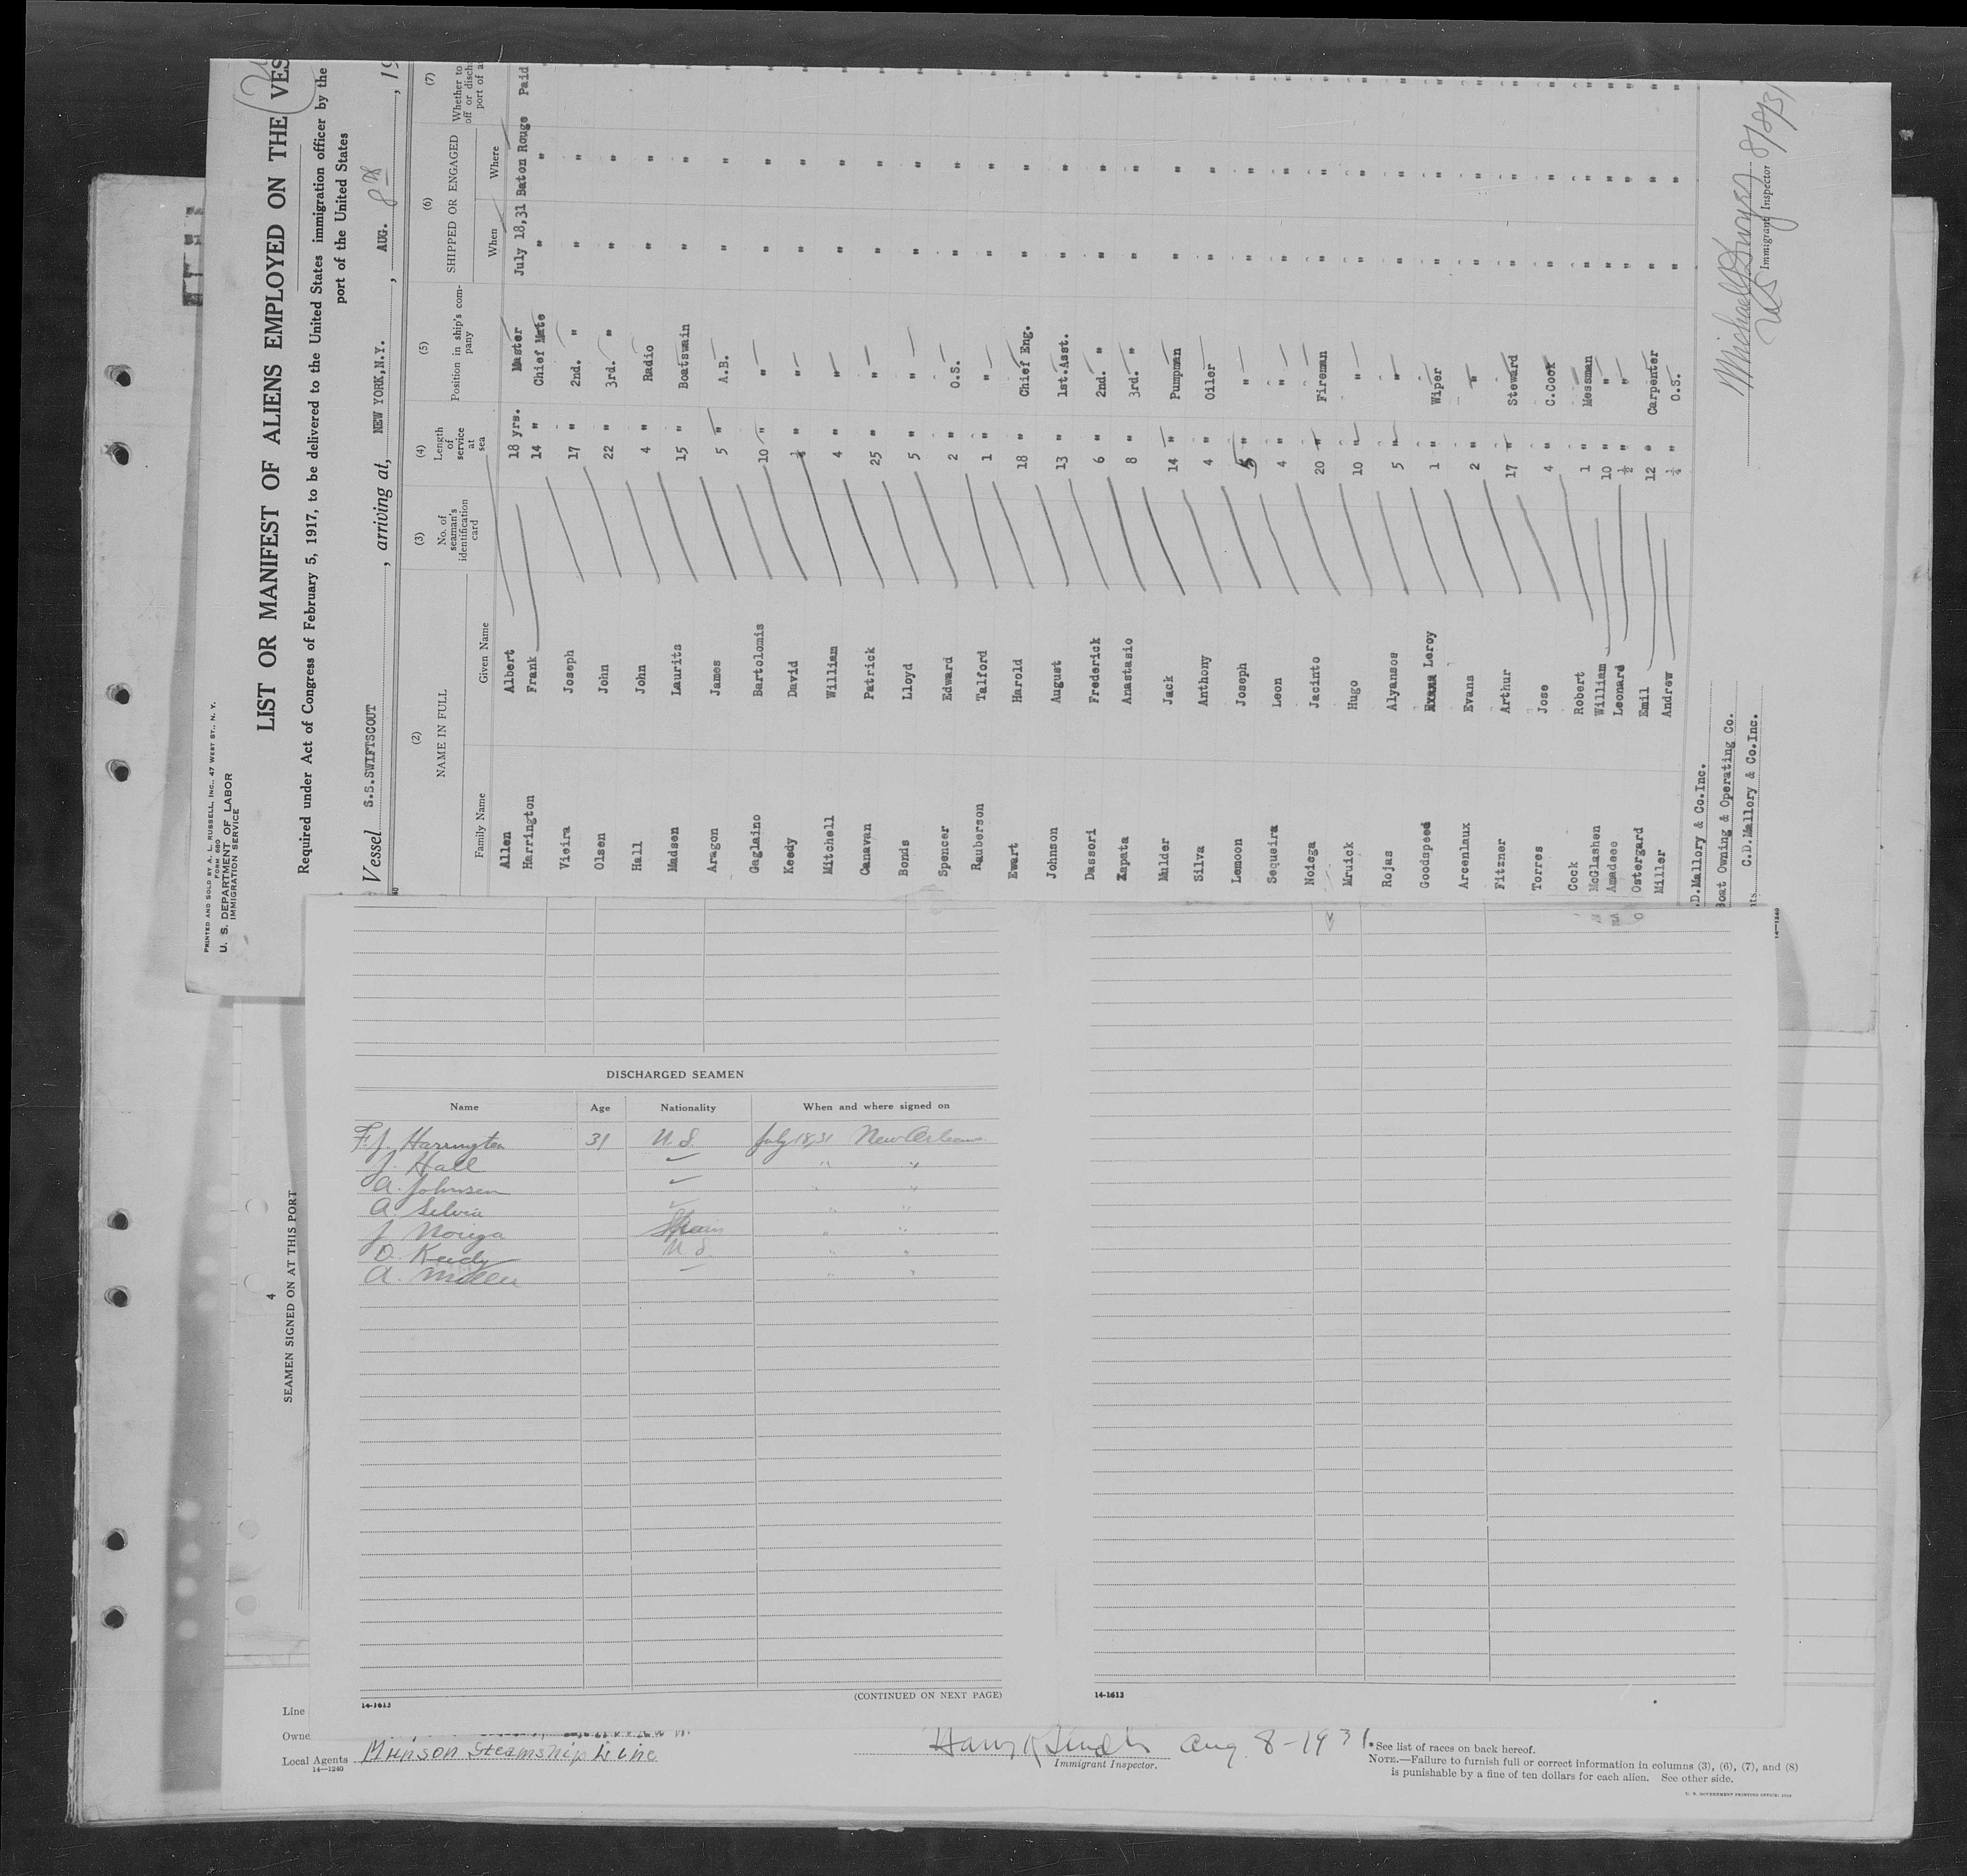 PRINTED AND SOLD BY A. L. RUSSELL, INC., 47 WEST ST., N. Y.
FORM 680
U. S. DEPARTMENT OF LABOR
IMMIGRATION SERVICE
LIST OR MANIFEST OF ALIENS EMPLOYED ON THE VES
Required under Act of Congress of February 5, 1917, to be delivered to the United States immigration officer by the
port of the United States
Vessel S.S.SWIFTSCOUT, arriving at, NEW YORK,N.Y., AUG. 8th, 19
(2) (3) (4) (5) (6) (7)
NAME IN FULL No. of seaman's identification card Length of service at sea Position in ship's company SHIPPED OR ENGAGED Whether to off or disch port of a
Family Name Given Name When Where
Allen Albert 18 yrs. Master July 18,31 Baton Rouge Paid
Harrington Frank 14 " Chief Mate " " "
Vieira Joseph 17 " 2nd. " " " "
Olsen John 22 " 3rd. " " " "
Hall John 4 " Radio " " "
Madsen Laurits 15 " Boatswain " " "
Aragon James 5 " A.B. " " "
Gaglaino Bartolomis 10 " " " " "
Keedy David " " " " "
Mitchell William 4 " " " " "
Canavan Patrick 25 " " " " "
Bonds Lloyd 5 " " " " "
Spencer Edward 2 " O.S. " " "
Rauberson Talford 1 " " " " "
Ewart Harold 18 " Chief Eng. " " "
Johnson August 13 " 1st.Asst. " " "
Dassori Frederick 6 " 2nd. " " " "
Zapata Anastasio 8 " 3rd. " " " "
Mulder Jack 14 " Pumpman " " "
Silva Anthony 4 " Oiler " " "
Lemoon Joseph 5 " " " " "
Sequeira Leon 4 " " " " "
Noiega Jacinto 20 " Fireman " " "
Mruick Hugo 10 " " " " "
Rojas Alyansos 5 " " " " "
Goodspeed Leroy 1 " Wiper " " "
Arcenlaux Evans 2 " " " " "
Fitzner Arthur 17 " Steward " " "
Torres Jose 4 " C.Cook " " "
Cock Robert 1 " Messman " " "
McGlashen William 10 " " " " "
Amadeee Leonard ½ " " " " "
Ostergard Emil 12 " Carpenter " " "
Miller Andrew ¼ " O.S. " " "
.D.Mallory & Co.Inc.
Boat Owning & Operating Co.
C.D.Mallory & Co.Inc.
Immigrant Inspector
8/8/31
14—1240
4
SEAMEN SIGNED ON AT THIS PORT
DISCHARGED SEAMEN
Name Age Nationality When and where signed on
F.J. Harrington 31 U.S. July 18,31 New Orleans
J. Hall " "
A. Johnsen " "
A. Silvia " "
J Noriga Spain " "
D. Keedy U.S. " "
A. Miller " "
14-1613
(CONTINUED ON NEXT PAGE)
14-1613
Line
Owne
Local Agents Munson Steamship Line
14—1240
Aug. 8-1931
Immigrant Inspector.
*See list of races on back hereof.
NOTE.—Failure to furnish full or correct information in columns (3), (6), (7), and (8)
is punishable by a fine of ten dollars for each alien. See other side.